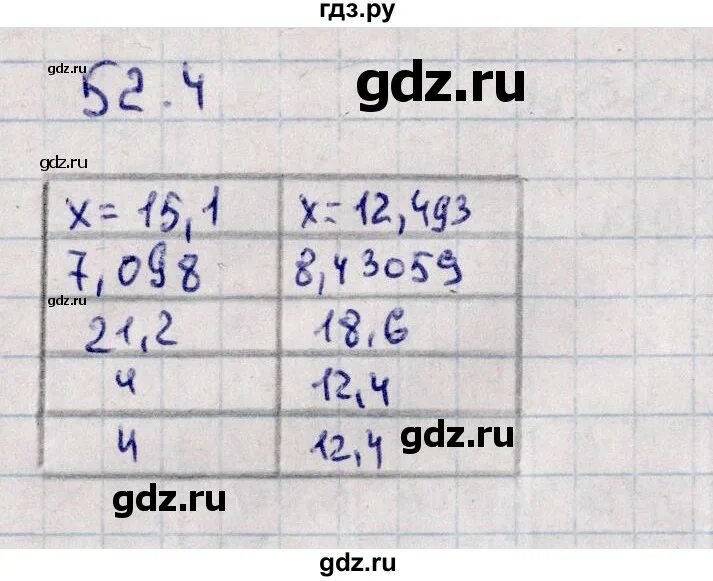 гдз.ру
gdz.ru
52.4
gdz.ru
gdz.ru
x = 15,1 x = 12,493
7,098 8,43059
gdz.ru
21,2 18,6
4 12,4
4 12,4
gdz.ru
gdz.ru
gdz.ru